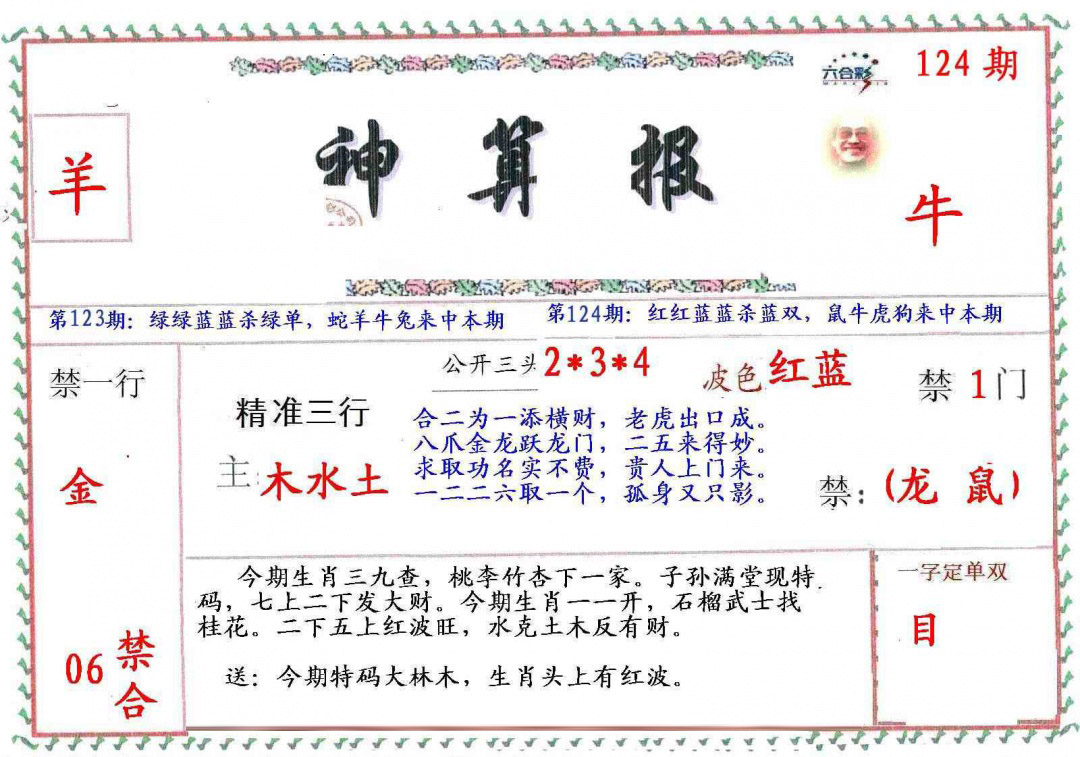 六合彩
124 期
羊
神算报
牛
第123期：绿绿蓝蓝杀绿单，蛇羊牛兔来中本期
第124期：红红蓝蓝杀蓝双，鼠牛虎狗来中本期
禁一行
金
06 禁合
公开三头 2*3*4
波色 红蓝
精准三行
主: 木水土
合二为一添横财，老虎出口成。
八爪金龙跃龙门，二五来得妙。
求取功名实不费，贵人上门来。
一二二六取一个，孤身又只影。
禁 1 门
禁：(龙 鼠)
今期生肖三九查，桃李竹杏下一家。子孙满堂现特
码，七上二下发大财。今期生肖一一开，石榴武士找
桂花。二下五上红波旺，水克土木反有财。
送：今期特码大林木，生肖头上有红波。
一字定单双
目